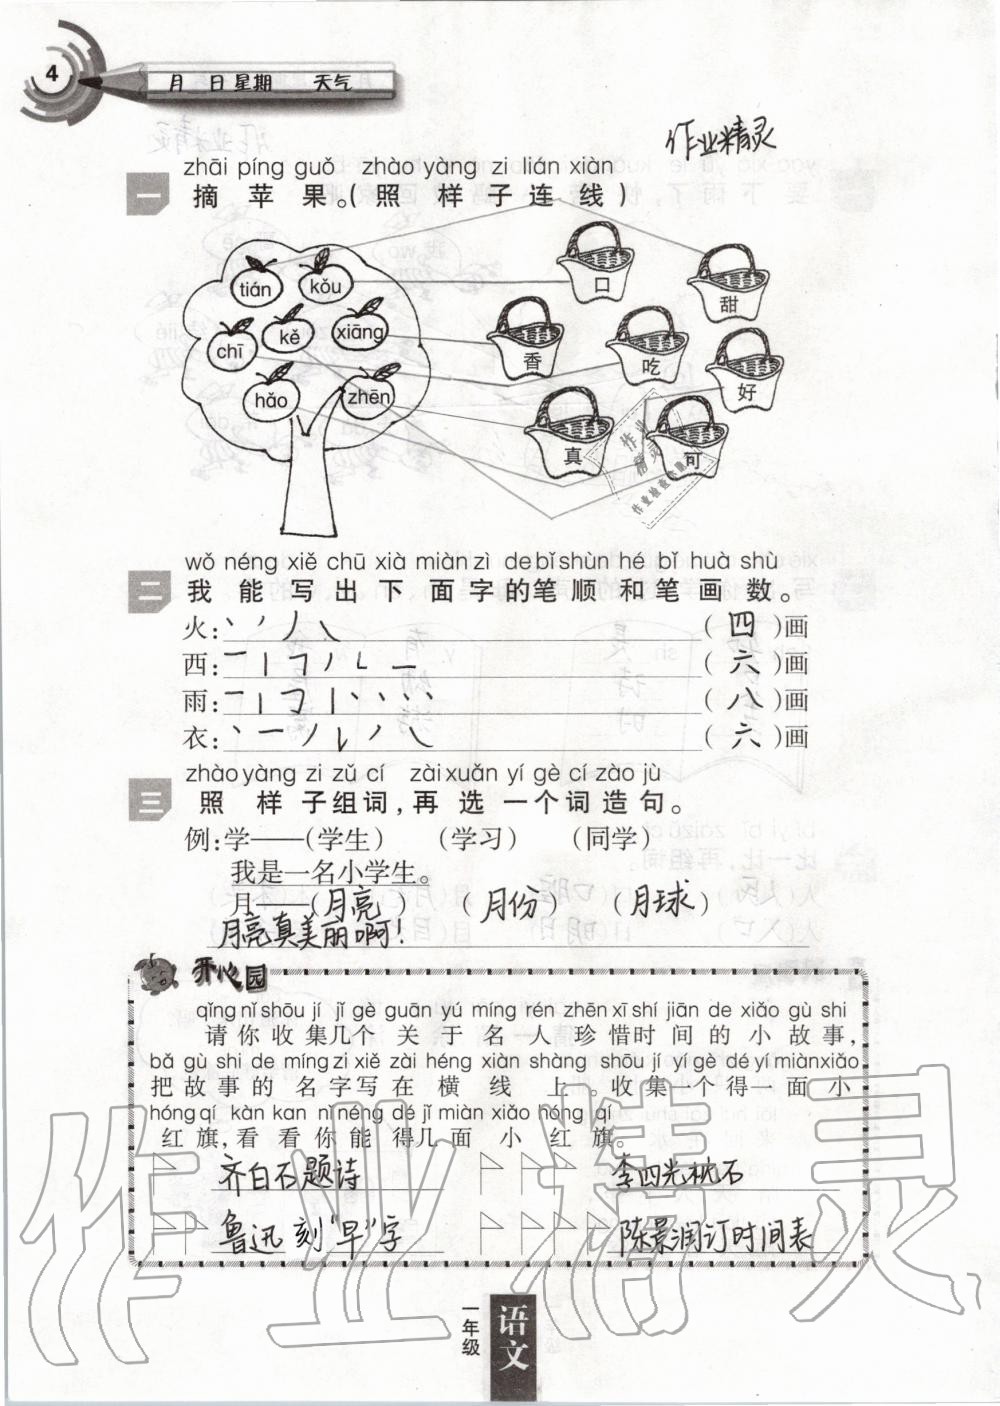 4
月 日 星期 天气
作业精灵
zhāi píng guǒ zhào yàng zi lián xiàn
一 摘 苹 果。(照 样 子 连 线)
tián kǒu
chī kě xiāng
hǎo zhēn
口 甜
香 吃 好
真 可
作业精灵
作业检查小帮手
wǒ néng xiě chū xià miàn zì de bǐ shùn hé bǐ huà shù
二 我 能 写 出 下 面 字 的 笔 顺 和 笔 画 数。
火: (四)画
西: (六)画
雨: (八)画
衣: (六)画
zhào yàng zi zǔ cí zài xuǎn yí gè cí zào jù
三 照 样 子 组 词,再 选 一 个 词 造 句。
例:学——(学生) (学习) (同学)
我是一名小学生。
月——(月亮) (月份) (月球)
月亮真美丽啊!
开心园
qǐng nǐ shōu jí jǐ gè guān yú míng rén zhēn xī shí jiān de xiǎo gù shi
请 你 收 集 几 个 关 于 名 人 珍 惜 时 间 的 小 故 事,
bǎ gù shi de míng zi xiě zài héng xiàn shàng shōu jí yí gè dé yí miàn xiǎo
把 故 事 的 名 字 写 在 横 线 上。收 集 一 个 得 一 面 小
hóng qí kàn kan nǐ néng dé jǐ miàn xiǎo hóng qí
红 旗,看 看 你 能 得 几 面 小 红 旗。
齐白石题诗 李四光枕石
鲁迅刻"早"字 陈景润订时间表
作业精灵
一年级
语文